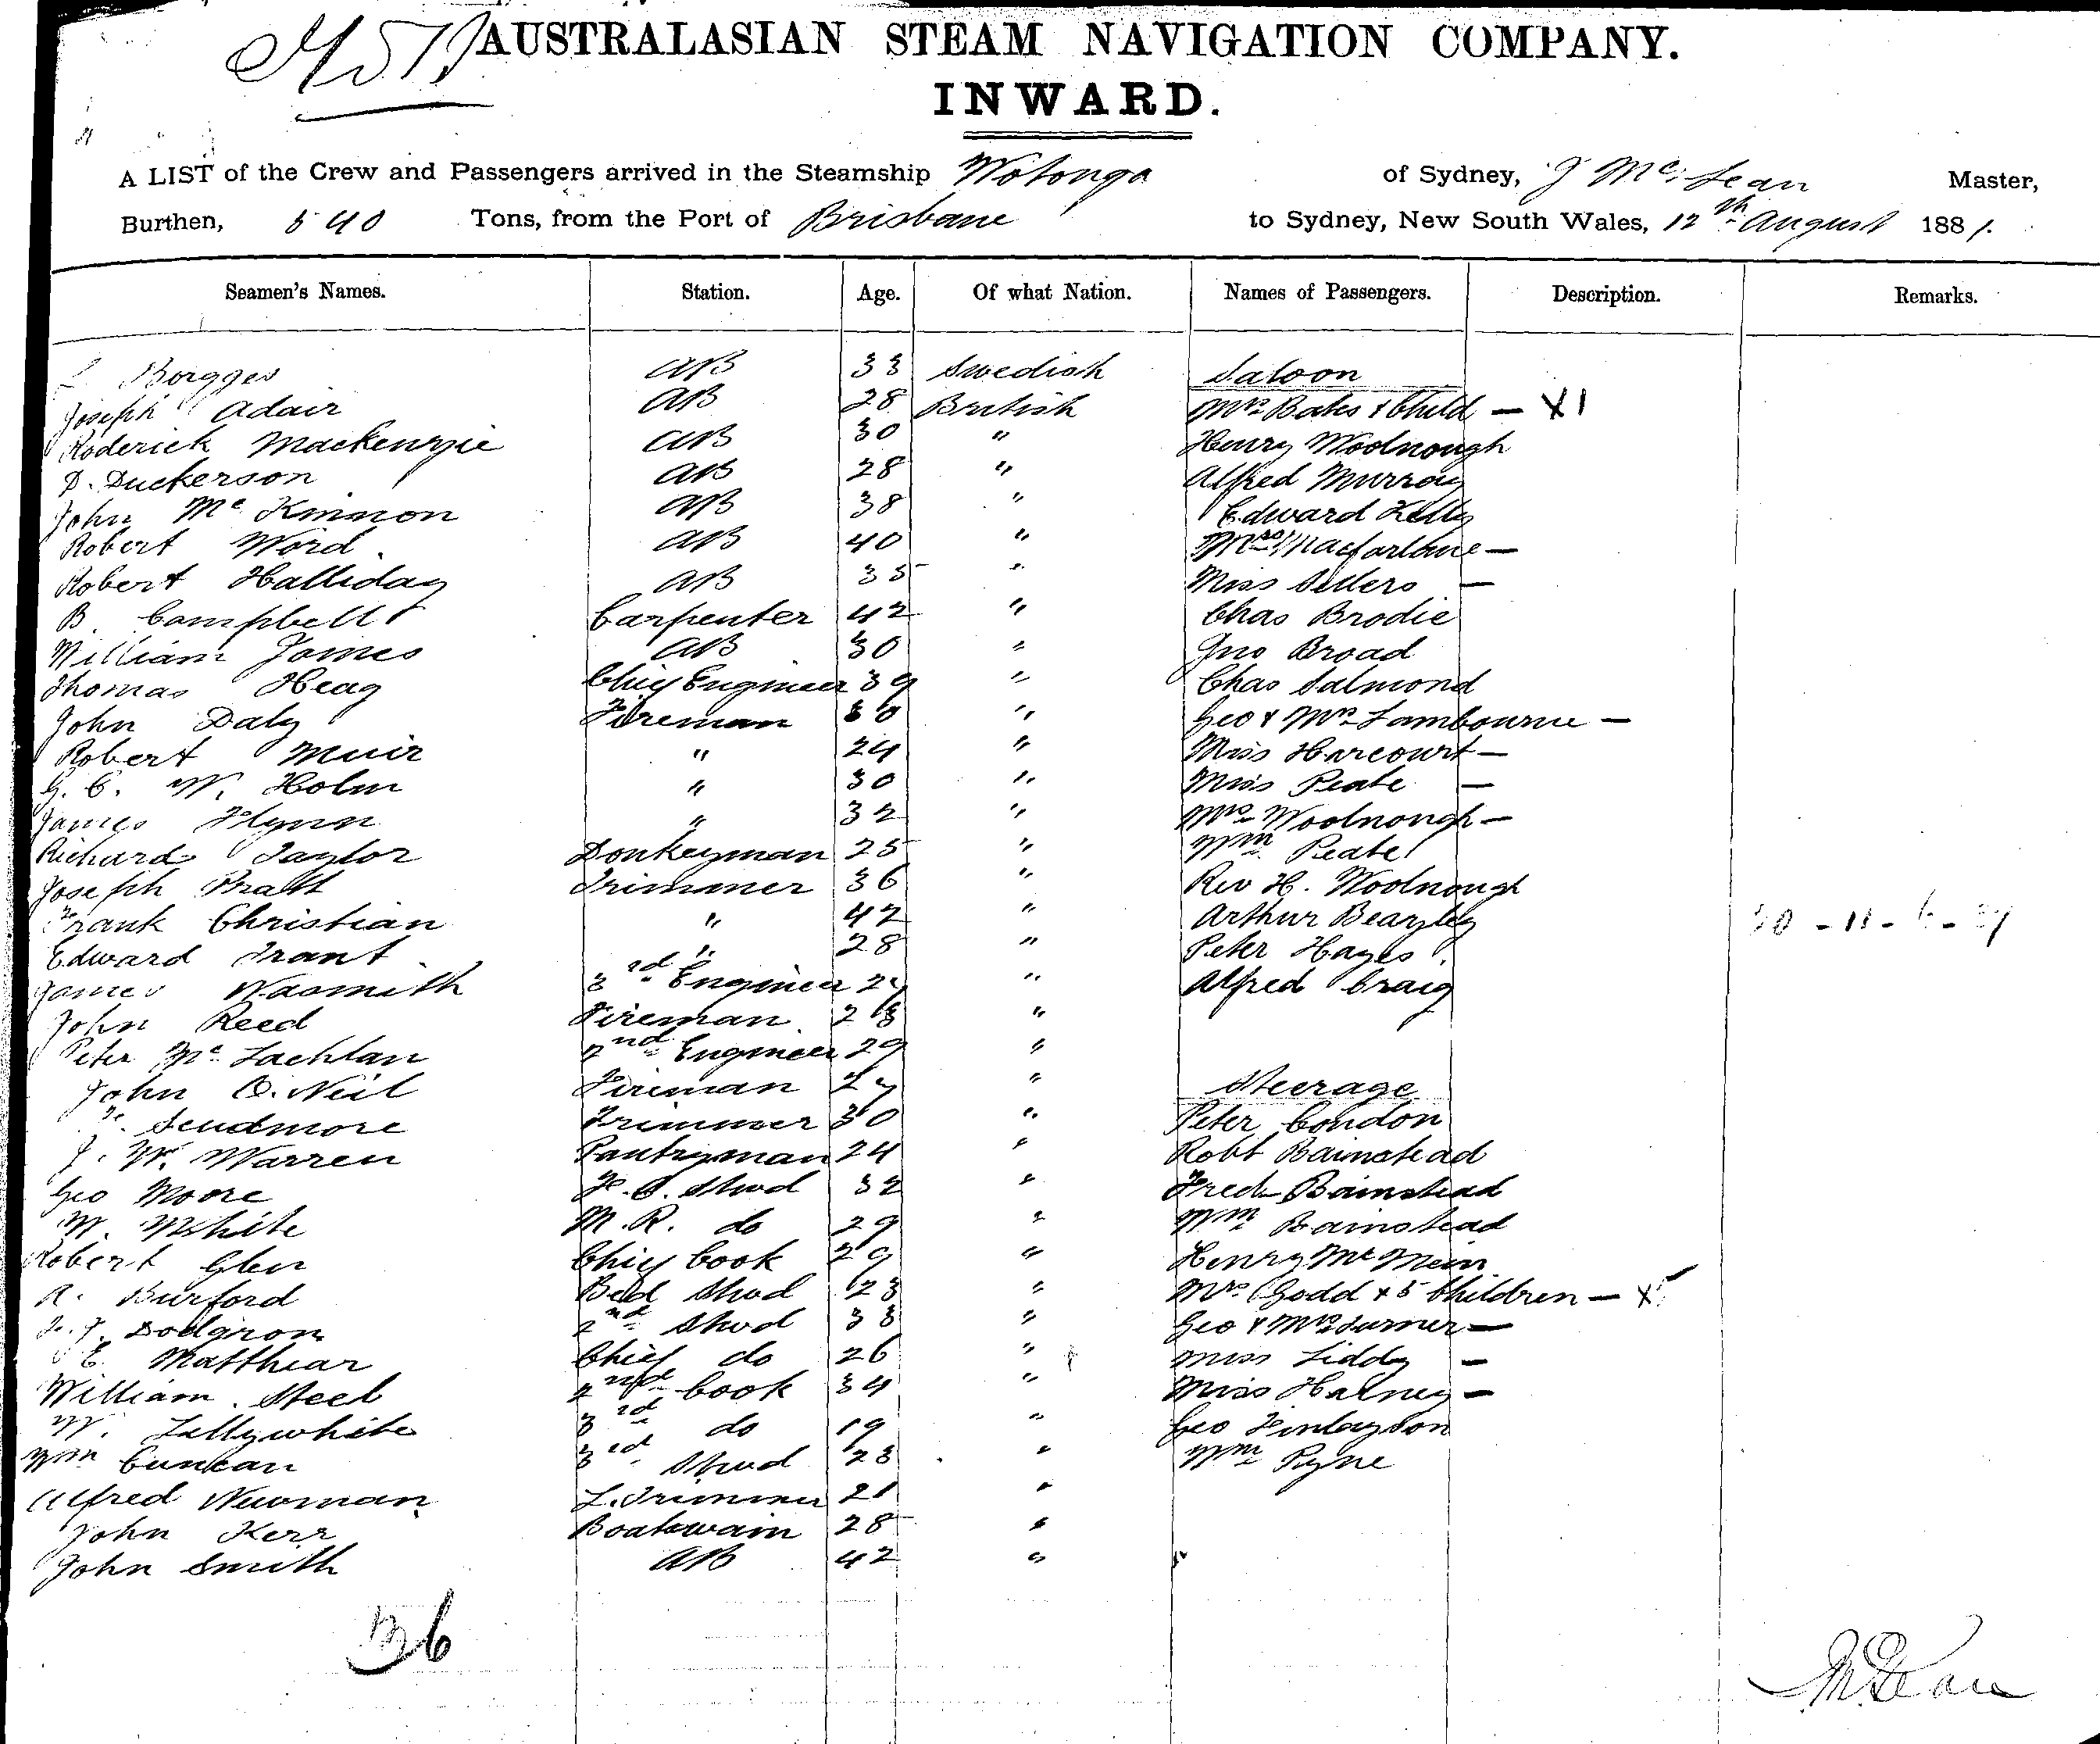 AUSTRALASIAN STEAM NAVIGATION COMPANY.
INWARD.
A LIST of the Crew and Passengers arrived in the Steamship Wotonga of Sydney, J McLean Master,
Burthen, 540 Tons, from the Port of Brisbane to Sydney, New South Wales, 12th August 1881.
Seamen's Names. Station. Age. Of what Nation. Names of Passengers. Description. Remarks.
Borgges AB 33 Swedish Saloon
Joseph Adair AB 28 British Mrs Bates & Child — X1
Roderick Mackenzie AB 30 " Henry Woolnough
D. Duckerson AB 28 " Alfred Murray
John Mc Kinnon AB 38 " Edward Kelly
Robert Word AB 40 " Macfarlane —
Robert Halliday AB 35 " Miss Sellers —
B Campbell Carpenter 42 " Chas Brodie
William James AB 30 " Jno Broad
Thomas Heag Chief Engineer 39 " Chas Salmond
John Daly Fireman 30 " Geo & Mrs Lambourne —
Robert Muir " 24 " Miss Harcourt —
G. C. W. Holm " 30 " Miss Peate —
James Flynn " 32 " Mrs Woolnough —
Richard Taylor Donkeyman 25 " Wm Peate
Joseph Pratt Trimmer 36 " Rev H. Woolnough
Frank Christian " 42 " Arthur Beazley
Edward Grant " 28 " Peter Hayes
James Nasmith 3rd Engineer " Alfred Craig
John Reed Fireman 28 "
Peter Mc Lachlan 2nd Engineer 29 "
John O. Neil Fireman " Steerage
Scudmore Trimmer 30 " Peter Condon
J. W. Warren Pantryman 24 " Robt Bainstead
Geo Moore F. C. Stwd 32 " Fredk Bainstead
W. White M. R. do 29 " Wm Bainstead
Robert Glen Chief Cook 29 " Henry Mc
R. Burford Bed Stwd 23 " Mrs Godd & 5 Children — X5
Dodgson 2nd Stwd 33 " Geo & Mrs Turner —
E. Matthiar Chief do 26 " Miss Liddy —
William Steel 2nd Cook 34 " Miss Halney —
W. Lillywhite 3rd do 19 " Geo Finlayson
Wm Cuncan 3rd Stwd 23 " Wm Pyne
Alfred Newman L. Trimmer 21 "
John Kerr Boatswain 28 "
John Smith AB 42 "
36
J McLean